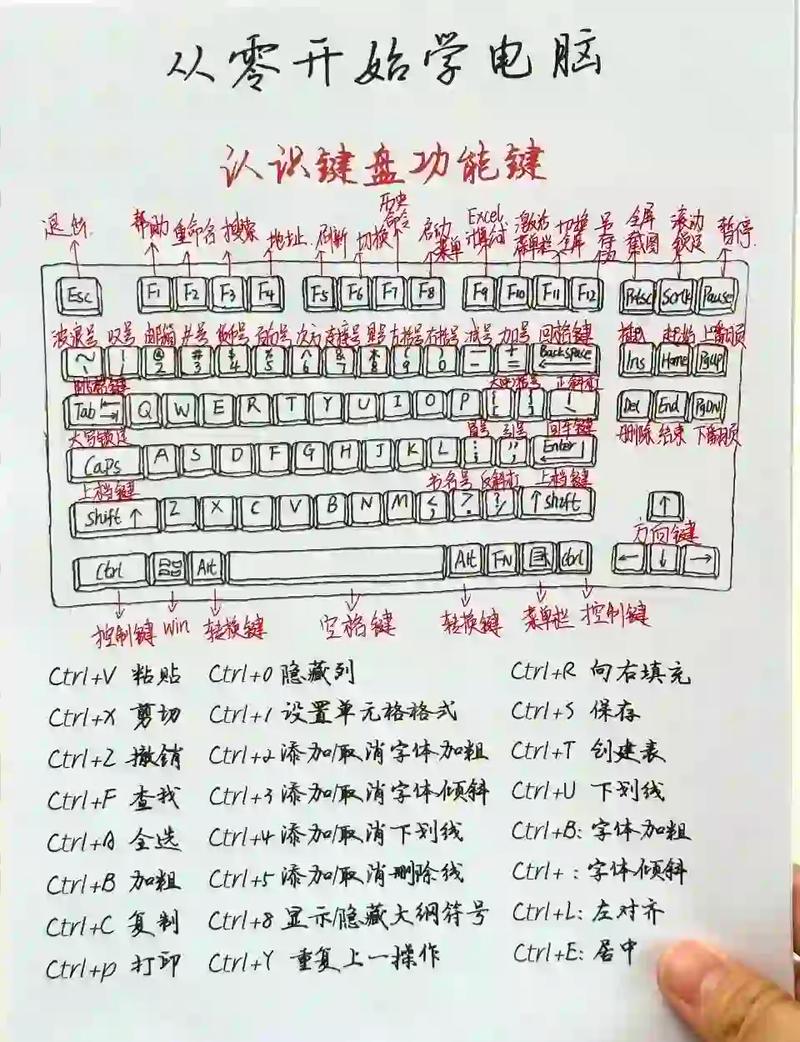 从零开始学电脑
认识键盘功能键
退出 帮助 重命名 搜索 地址 刷新 切换 历史命令 启动菜单 Excel计算 激活菜单栏 切换全屏 另存为 全屏截图 滚动锁定 暂停
Esc F1 F2 F3 F4 F5 F6 F7 F8 F9 F10 F11 F12 PrtSc ScrLk Pause
波浪号 叹号 邮箱 井号 百分号 次方 连接号 星号 左括号 右括号 减号 加号 回格键 插入 起始 上翻页
~ ! @ 2 # 3 $ 4 % 5 ^ 6 & 7 * 8 ( 9 ) 0 - + = BackSpace Ins Home PgUp
大括号 正斜杠
Tab Q W E R T Y U I O P { [ } ] | \ Del End PgDn
大写锁定 冒号 引号 回车键 删除 结束 下翻页
Caps A S D F G H J K L : ; " ' Enter
上档键 书名号 反斜杠 上档键
Shift ↑ Z X C V B N M < , > . ? / ↑ Shift ↑
方向键
Ctrl Alt Alt FN Ctrl ← ↓ →
控制键 Win 转换键 空格键 转换键 菜单栏 控制键
Ctrl+V 粘贴 Ctrl+0 隐藏列 Ctrl+R 向右填充
Ctrl+X 剪切 Ctrl+1 设置单元格格式 Ctrl+S 保存
Ctrl+Z 撤销 Ctrl+2 添加/取消字体加粗 Ctrl+T 创建表
Ctrl+F 查找 Ctrl+3 添加/取消字体倾斜 Ctrl+U 下划线
Ctrl+A 全选 Ctrl+4 添加/取消下划线 Ctrl+B: 字体加粗
Ctrl+B 加粗 Ctrl+5 添加/取消删除线 Ctrl+ : 字体倾斜
Ctrl+C 复制 Ctrl+8 显示/隐藏大纲符号 Ctrl+L: 左对齐
Ctrl+p 打印 Ctrl+Y 重复上一操作 Ctrl+E: 居中